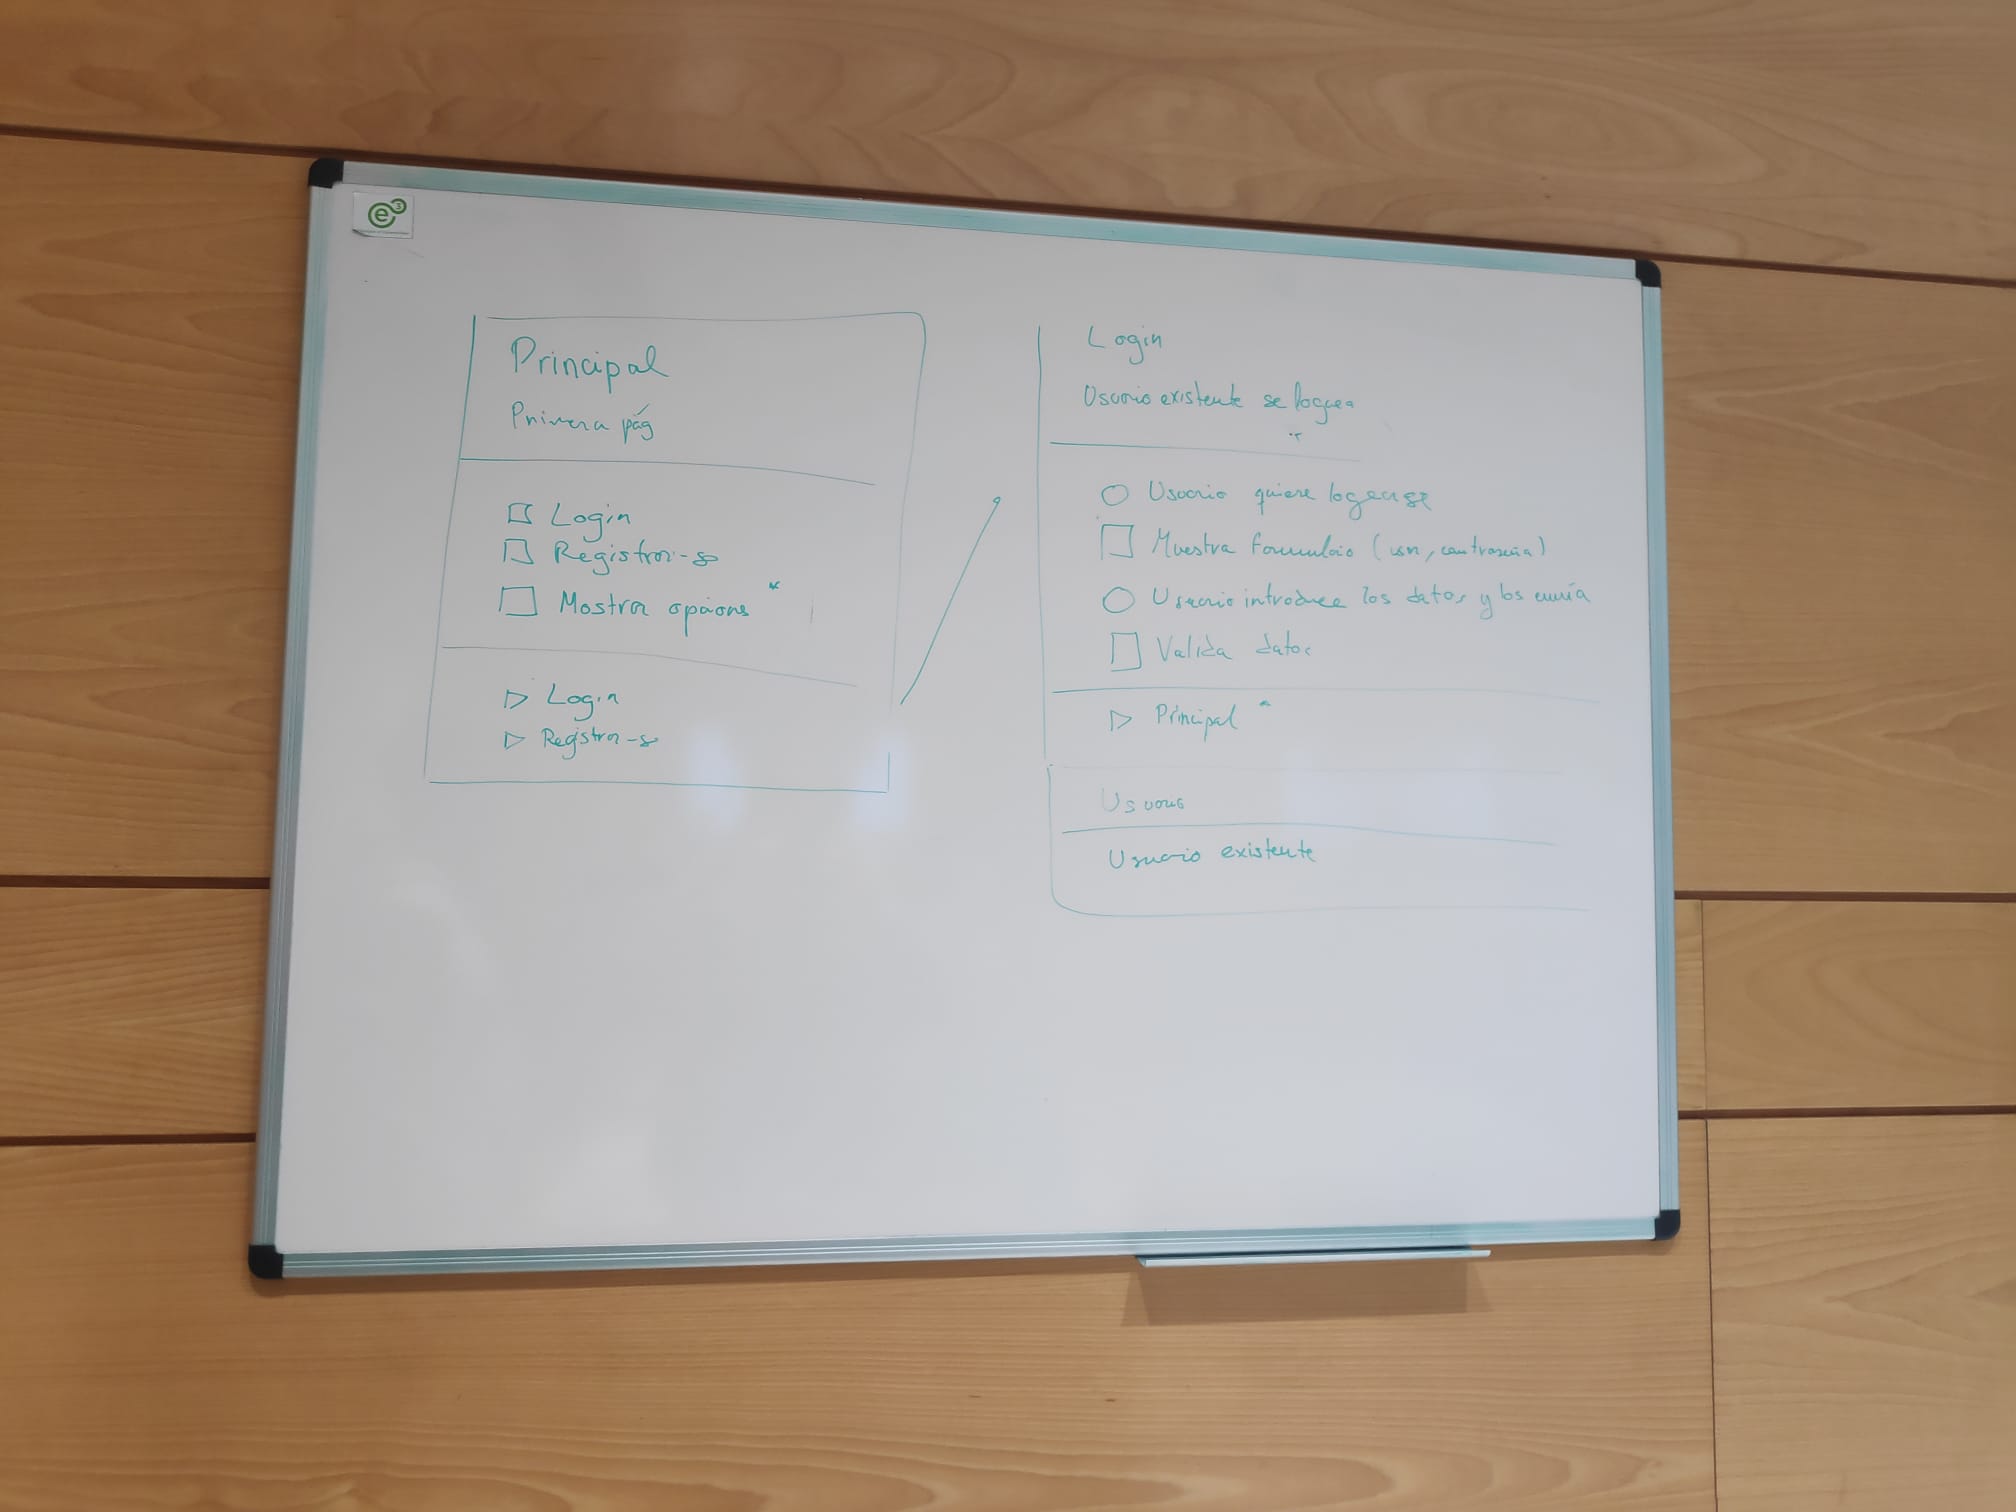 e3
Principal
Primera pág
Login
Registrar-se
Mostra opcions *
Login
Registrar-se
Login
Usuario existente se loguea
Usuario quiere logearse
Muestra formulario (usn, contraseña)
Usuario introduce los datos y los envía
Valida datos
Principal *
Usuario existente